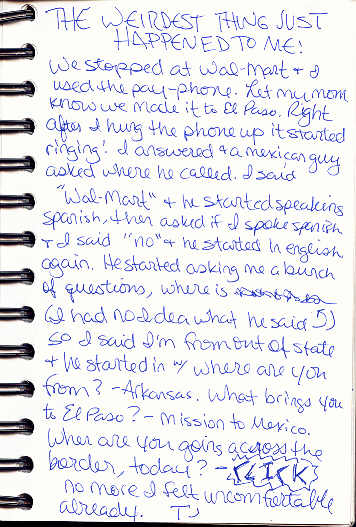 THE WEIRDEST THING JUST
HAPPENED TO ME:
We stopped at Wal-Mart + I
used the pay-phone. Let my mom
know we made it to El Paso. Right
after I hung the phone up it started
ringing! I answered + a mexican guy
asked where he called. I said
"Wal-Mart" + he started speaking
spanish, then asked if I spoke spanish
+ I said "no" + he started in english
again. He started asking me a bunch
of questions, where is
(I had no Idea what he said)
so I said I'm from out of state
+ he started in w/ where are you
from? - Arkansas. What brings you
to El Paso? - Mission to Mexico.
When are you going across the
border, today? - CLICK
no more I felt uncomfortable
already. TJ